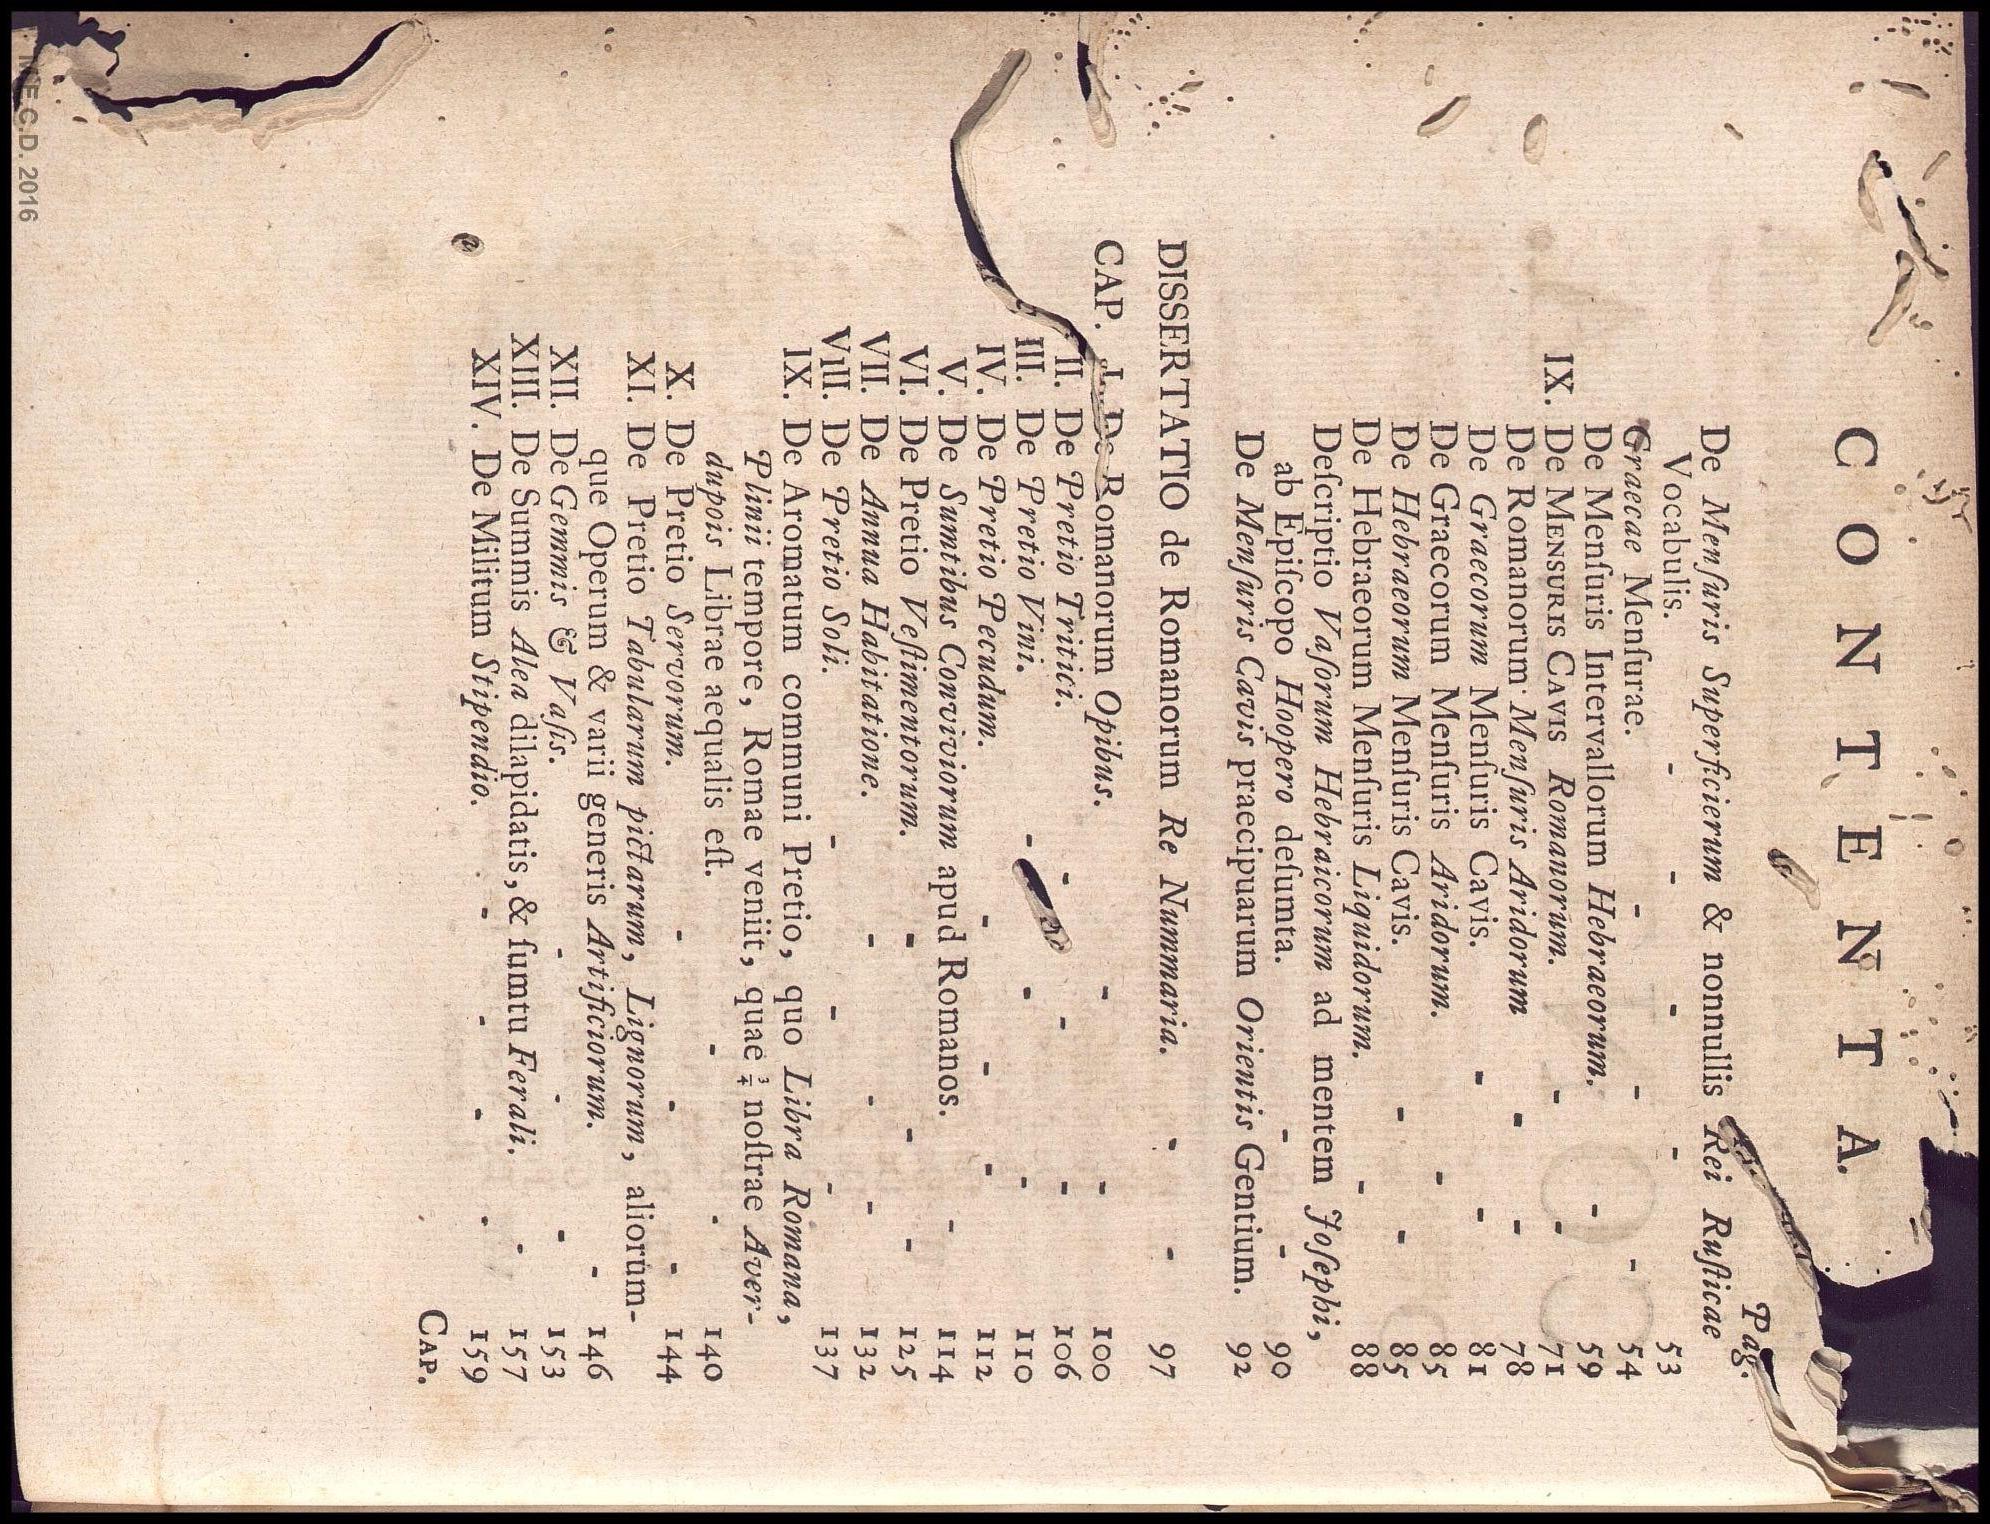 CONTENTA.
Pag.
De Menſuris Superficierum & nonnullis Rei Ruſticae
Vocabulis. - - - - 53
Graecae Menſurae. - - - 54
De Menſuris Intervallorum Hebraeorum. - 59
IX. De MENSURIS CAVIS Romanorum. - - 71
De Romanorum Menſuris Aridorum - - 78
De Graecorum Menſuris Cavis. - - 81
De Graecorum Menſuris Aridorum. - 85
De Hebraeorum Menſuris Cavis. - - 85
De Hebraeorum Menſuris Liquidorum. - 88
Deſcriptio Vaſorum Hebraicorum ad mentem Joſephi,
ab Epiſcopo Hoopero deſumta. - - 90
De Menſuris Cavis praecipuarum Orientis Gentium. 92
DISSERTATIO de Romanorum Re Nummaria. - - 97
CAP. I. De Romanorum Opibus. - - 100
II. De Pretio Tritici. - - - 106
III. De Pretio Vini. - - - 110
IV. De Pretio Pecudum. - - - 112
V. De Sumtibus Conviviorum apud Romanos. - 114
VI. De Pretio Veſtimentorum. - - - 125
VII. De Annua Habitatione. - - - 132
VIII. De Pretio Soli. - - - 137
IX. De Aromatum communi Pretio, quo Libra Romana,
Plinii tempore, Romae veniit, quae ¾ noſtrae Aver-
dupois Librae aequalis eſt. - - 140
X. De Pretio Servorum. - - - 144
XI. De Pretio Tabularum pictarum, Lignorum, aliorum-
que Operum & varii generis Artificiorum. - 146
XII. De Gemmis & Vaſis. - - - 153
XIII. De Summis Alea dilapidatis, & ſumtu Ferali. - 157
XIV. De Militum Stipendio. - - - - 159
CAP.
M.E.C.D. 2016